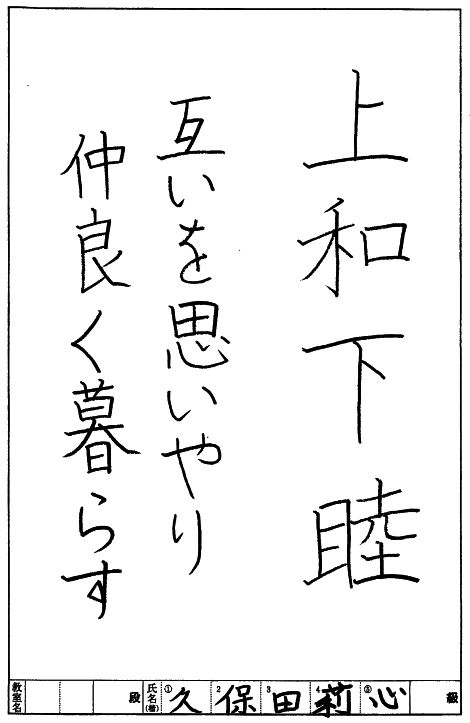 上和下睦
互いを思いやり
仲良く暮らす
教室名 段 氏名(番) ①久 2保 3田 4莉 ⑤心 級